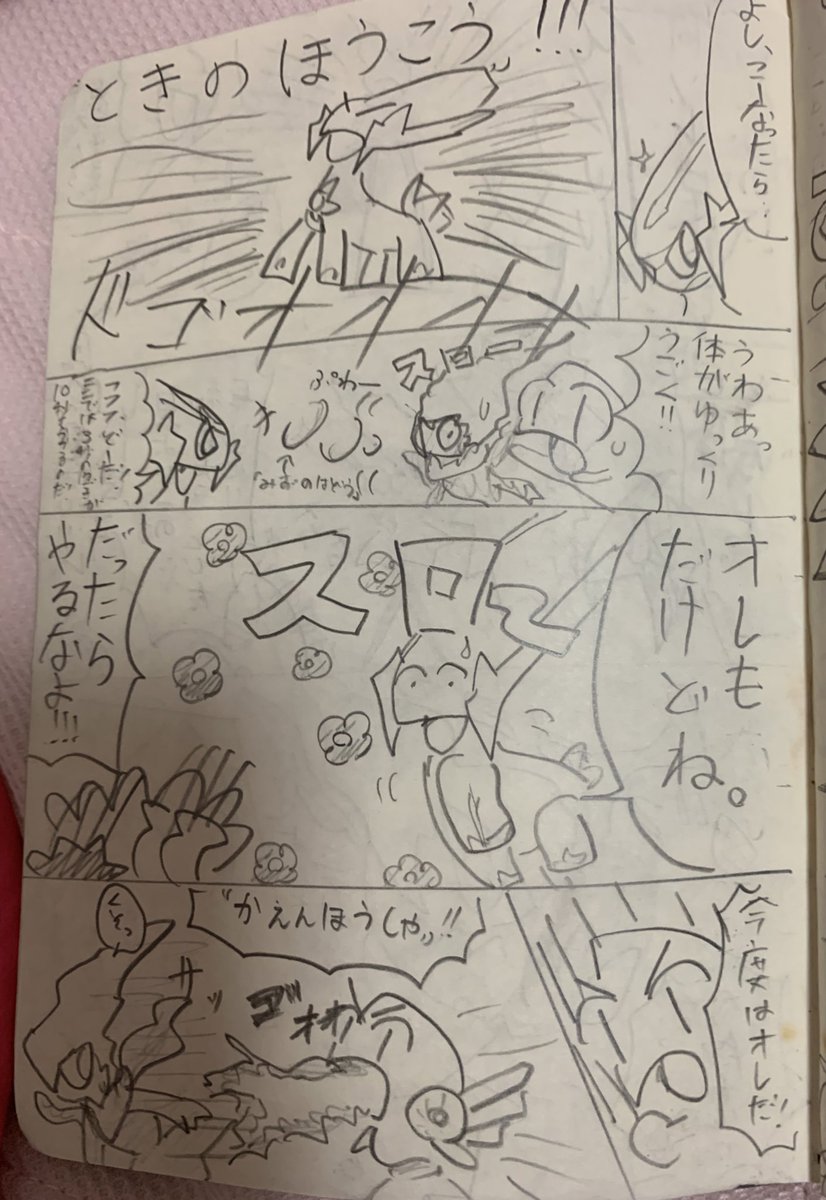 よし、こーなったら…
ときのほうこう!!!
ドゴオオオ
うわあっ
体がゆっくり
うごく!!
スロー
ぷわー
↑
「みずのはどう」
フフフ、どーだ!
ここでは3秒の
10
オレも
だけどね。
スロ〜
だったら
やるなよ!!!
今度はオレだ!
"かえんほうしゃッ"!!
ゴオオオ
サッ
くそっ